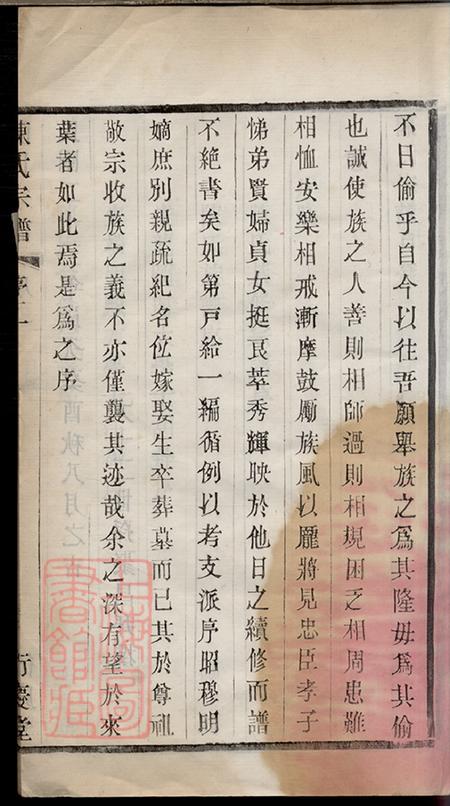 不日偷乎自今以往吾願舉族之爲其隆毋爲其偷
也誠使族之人善則相師過則相規困乏相周患難
相恤安樂相戒漸摩鼓勵族風以龎將見忠臣孝子
悌弟賢婦貞女挺良萃秀輝映於他日之續修而譜
不絶書矣如第戸給一編循例以考支派序昭穆明
嫡庶別親疏紀名位嫁娶生卒葬墓而已其於尊祖
敬宗收族之義不亦僅襲其迹哉余之深有望於來
葉者如此焉是爲之序
陳氏宗譜 序二 行慶堂